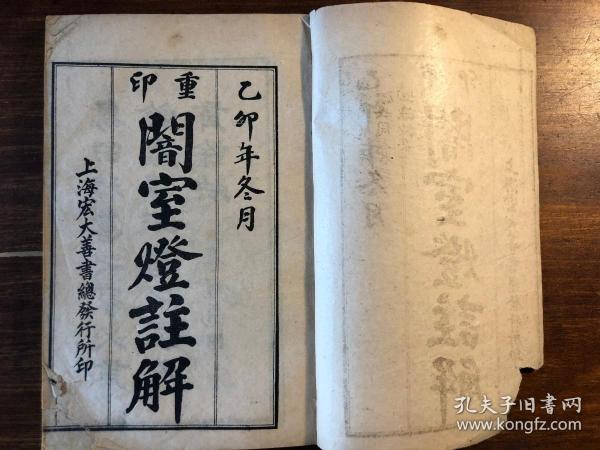 乙卯年冬月
重印
闇室燈註解
上海宏大善書總發行所印
孔夫子旧书网
www.kongfz.com